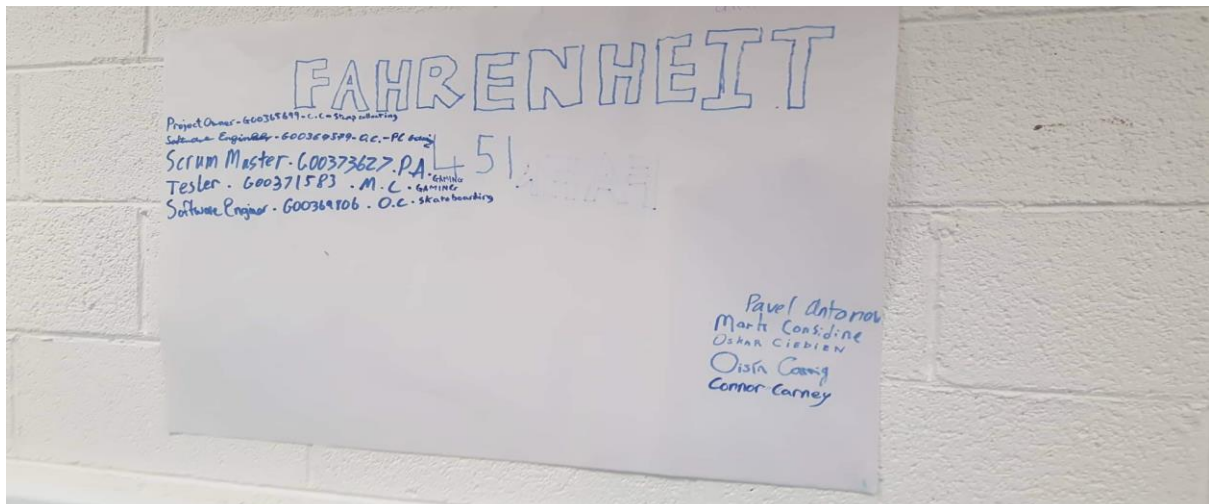 FAHRENHEIT
451
Project Owner - G00365699 - C.C - Stamp collecting
Software Engineer - G00369579 - O.C. - PC Gaming
Scrum Master. G00373627. P.A. GAMING
Tester. G00371583. M.C. GAMING
Software Enginer. G00369106. O.C. skateboarding
Pavel Antonov
Mark Considine
OSKAR
Oisín
Connor Carney